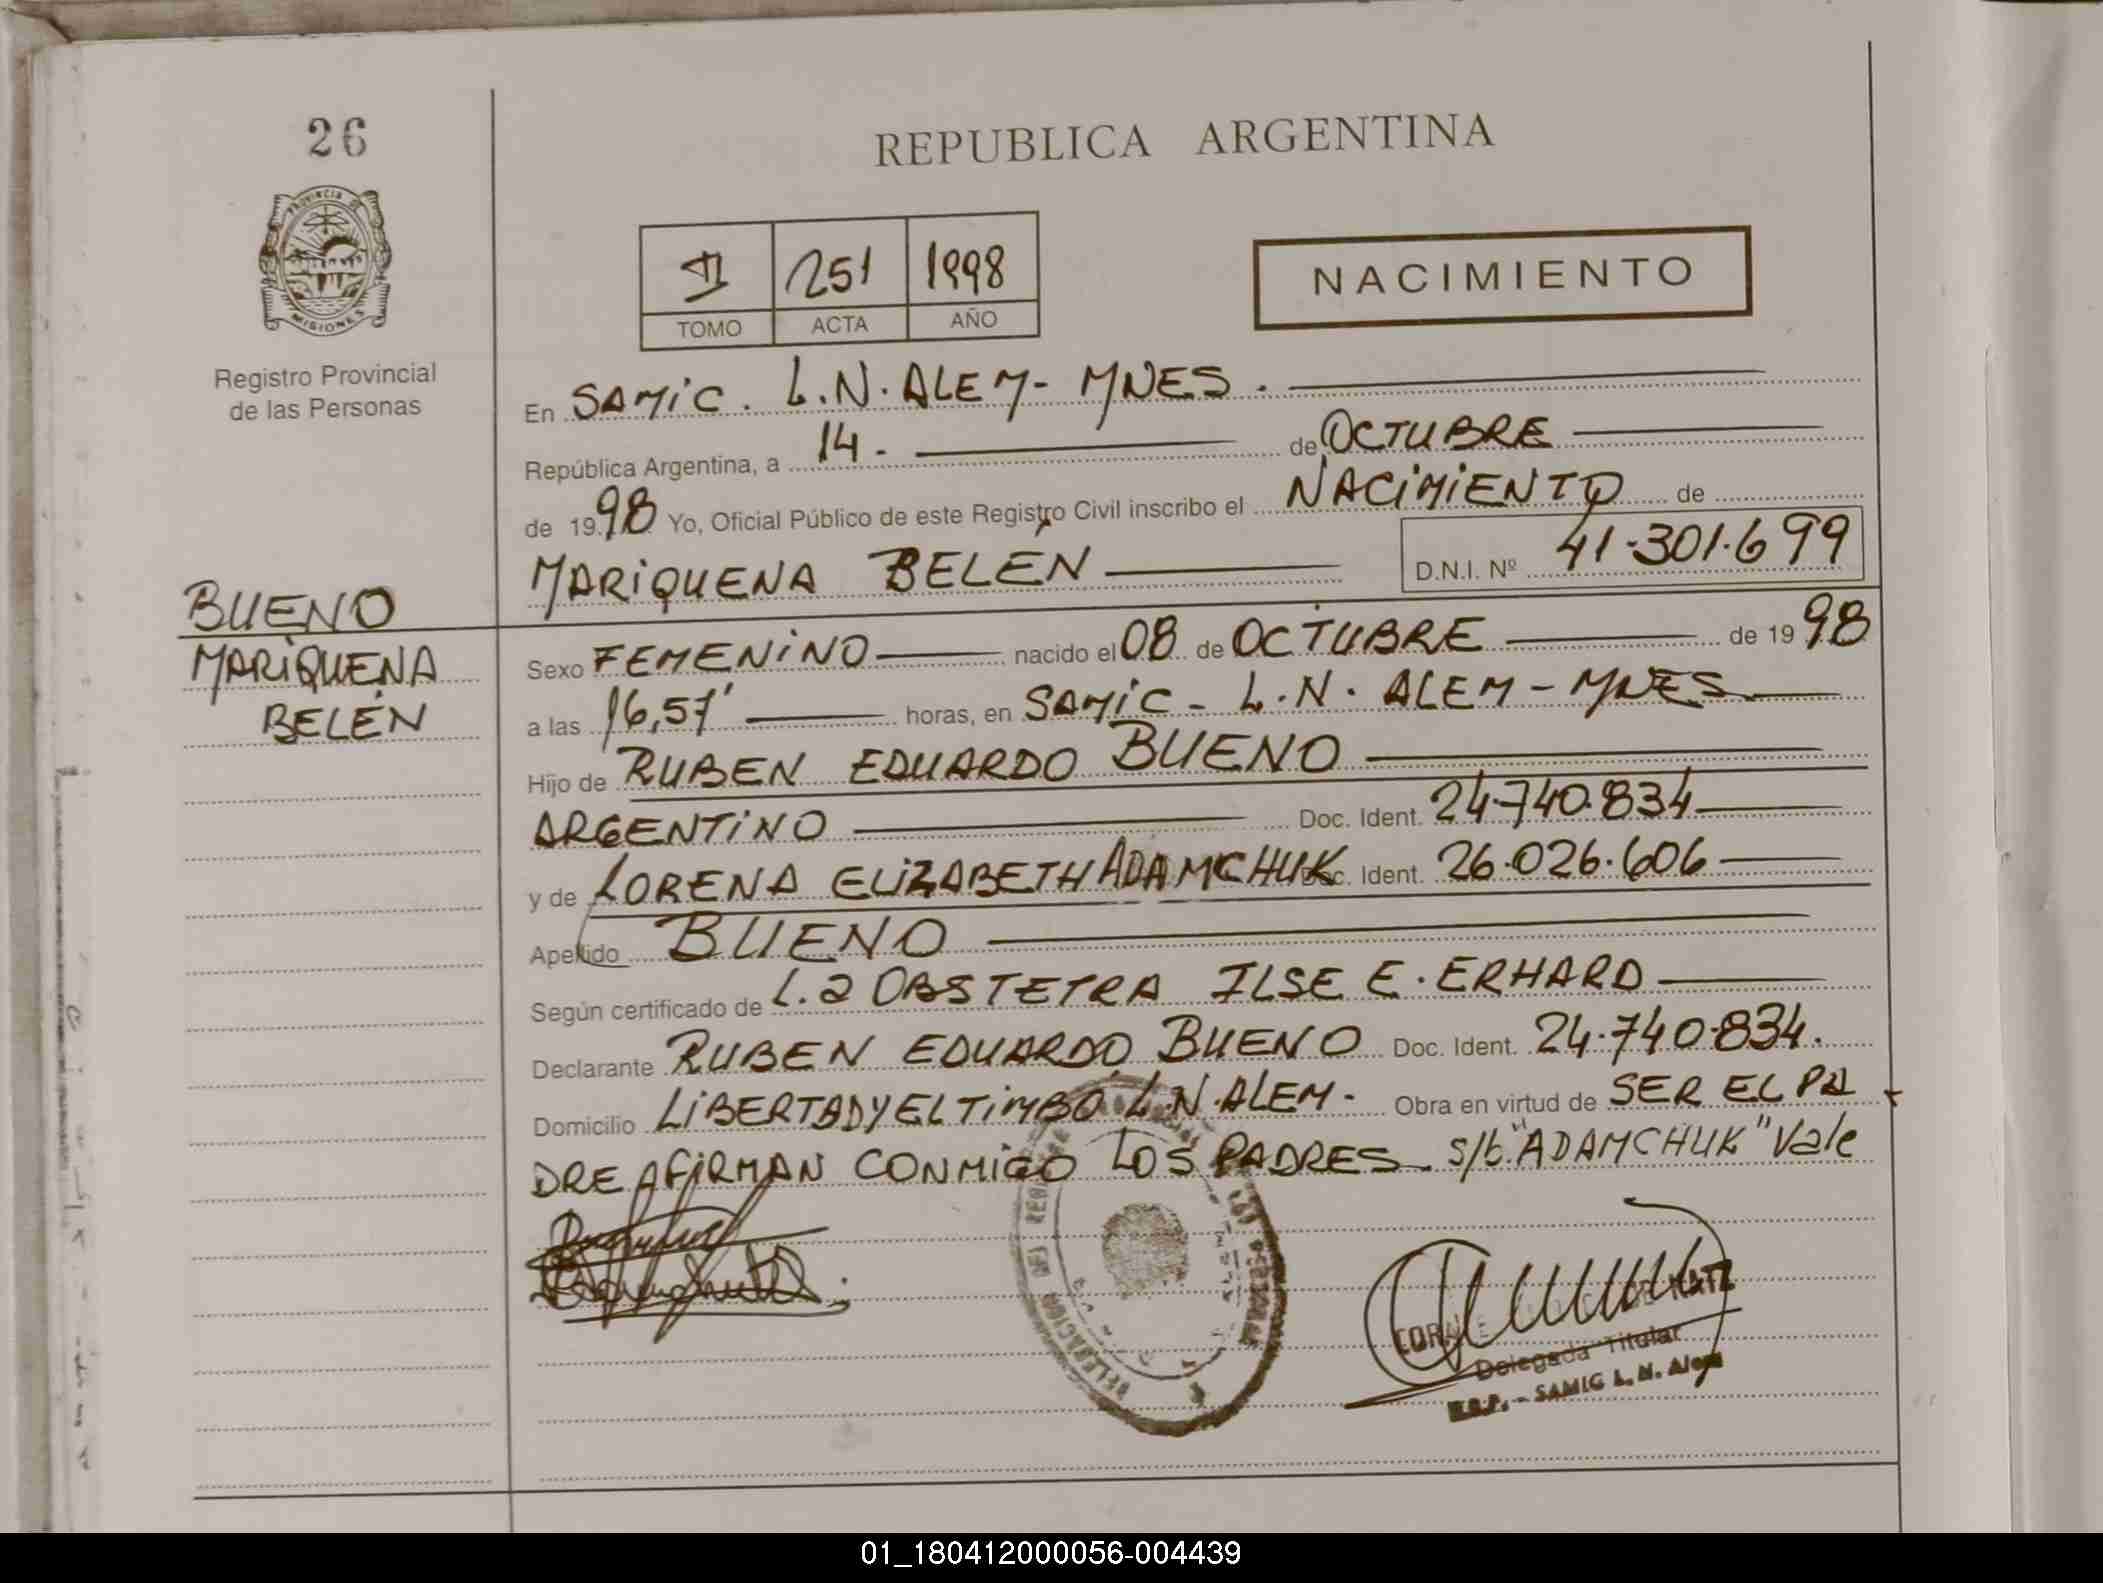 26
REPUBLICA ARGENTINA
PROVINCIA DE
MISIONES
Registro Provincial
de las Personas
II 251 1998
TOMO ACTA AÑO
NACIMIENTO
En SAMIC. L.N. ALEM - MNES.
República Argentina, a 14. de OCTUBRE
de 1998 Yo, Oficial Público de este Registro Civil inscribo el NACIMIENTO de
MARIQUENA BELÉN D.N.I. Nº 41.301.699
BUENO
MARIQUENA
BELÉN
Sexo FEMENINO nacido el 08 de OCTUBRE de 1998
a las 16,51' horas, en SAMIC - L.N. ALEM - MNES
Hijo de RUBEN EDUARDO BUENO
ARGENTINO Doc. Ident. 24.740.834
y de LORENA ELIZABETH ADAMCHUK Doc. Ident. 26.026.606
Apellido BUENO
Según certificado de L.a OBSTETRA ILSE E. ERHARD
Declarante RUBEN EDUARDO BUENO Doc. Ident. 24.740.834.
Domicilio LIBERTAD Y EL TIMBO L.N. ALEM. Obra en virtud de SER EL PA
DRE AFIRMAN CONMIGO LOS PADRES. s/b "ADAMCHUK" Vale
Delegada Titular
R.P.P. - SAMIC L. N. Alem
01_180412000056-004439